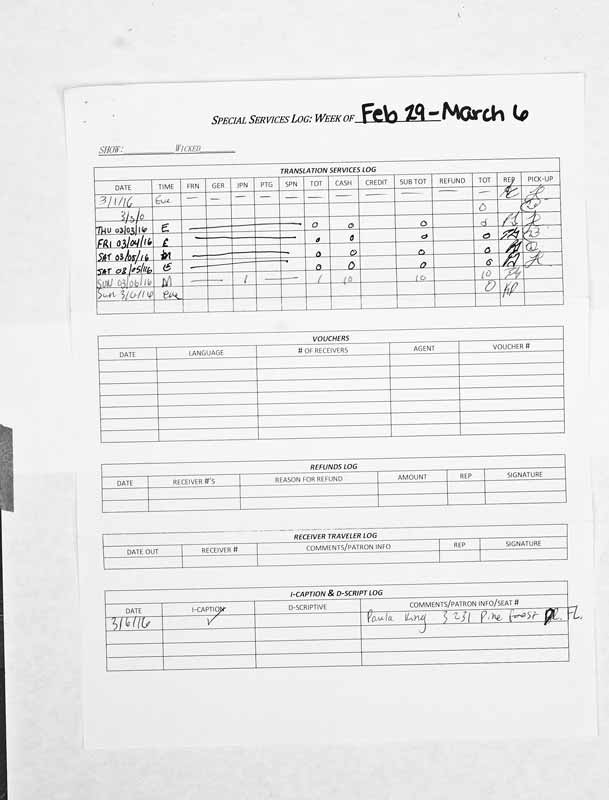 SPECIAL SERVICES LOG: WEEK OF Feb 29 - March 6
SHOW: WICKED
TRANSLATION SERVICES LOG
DATE TIME FRN GER JPN PTG SPN TOT CASH CREDIT SUB TOT REFUND TOT REP PICK-UP
3/1/16 Eve — — — — — — — — — — —
0
THU 03/03/16 E 0 0 0 0
FRI 03/04/16 E 0 0 0 0
SAT 03/05/16 M 0 0 0 0
SAT 03/05/16 E 0 0 0 0
SUN 03/06/16 M — 1 — 1 10 10 10
Sun 3/6/16 eve 0
VOUCHERS
DATE LANGUAGE # OF RECEIVERS AGENT VOUCHER #
REFUNDS LOG
DATE RECEIVER #'S REASON FOR REFUND AMOUNT REP SIGNATURE
RECEIVER TRAVELER LOG
DATE OUT RECEIVER # COMMENTS/PATRON INFO REP SIGNATURE
I-CAPTION & D-SCRIPT LOG
DATE I-CAPTION D-SCRIPTIVE COMMENTS/PATRON INFO/SEAT #
3/6/16 ✓ Paula King 3231 Pine Forest FL.